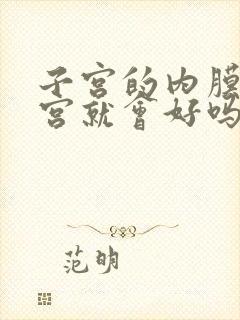 子宫的内膜
宫就会好吗
范明